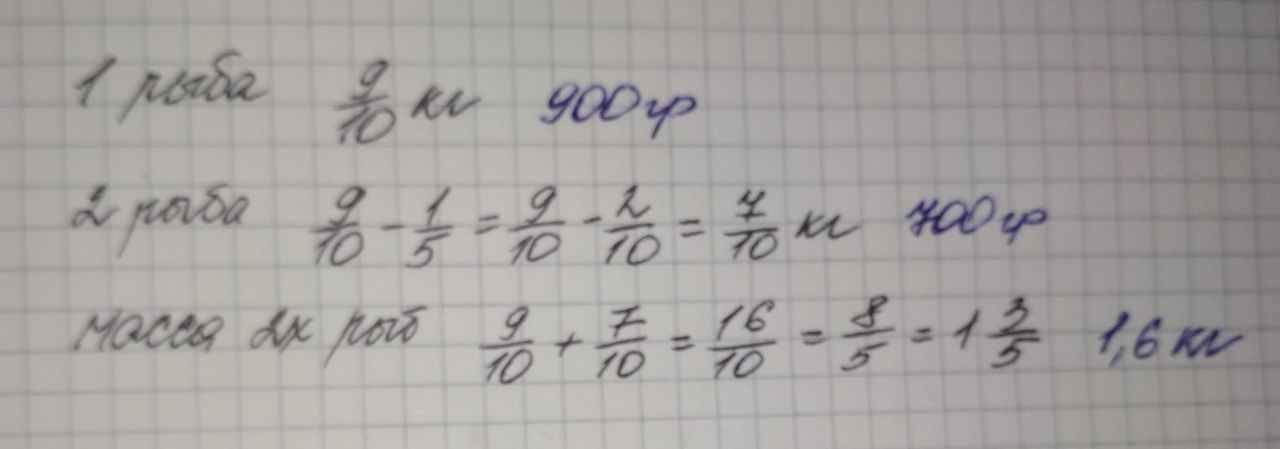 1 рыба 9/10 кг 900 гр
2 рыба 9/10 - 1/5 = 9/10 - 2/10 = 7/10 кг 700 гр
масса 2х рыб 9/10 + 7/10 = 16/10 = 8/5 = 1 3/5 1,6 кг